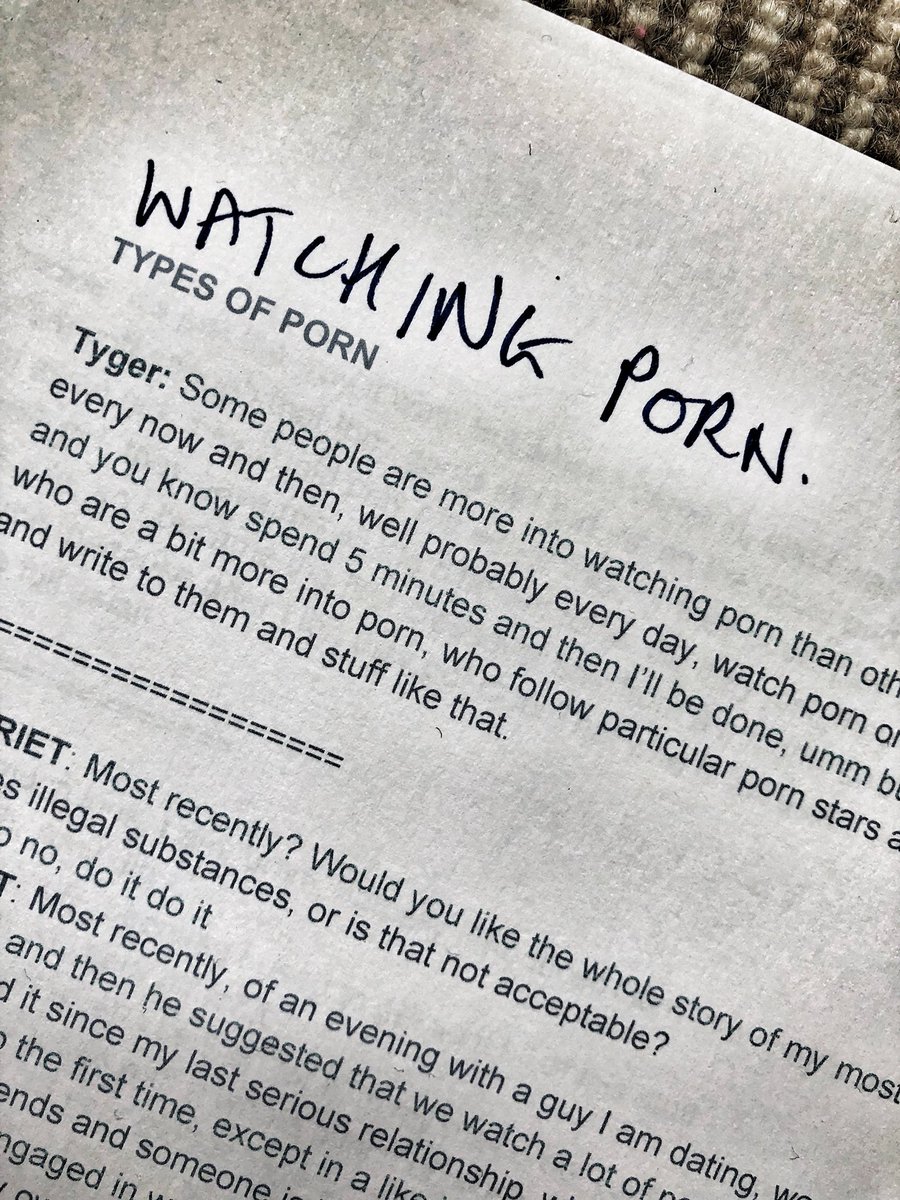 WATCHING PORN.
TYPES OF PORN
Tyger: Some people are more into watching porn than
every now and then, well probably every day, watch porn
and you know spend 5 minutes and then I'll be done, umm
who are a bit more into porn, who follow particular porn stars
and write to them and stuff like that.
====================
Most recently? Would you like the whole story of my most
illegal substances, or is that not acceptable?
no, do it do it
Most recently, of an evening with a guy I am dating,
and then he suggested that we watch a lot of
it since my last serious relationship,
the first time, except in a like
and someone is
in